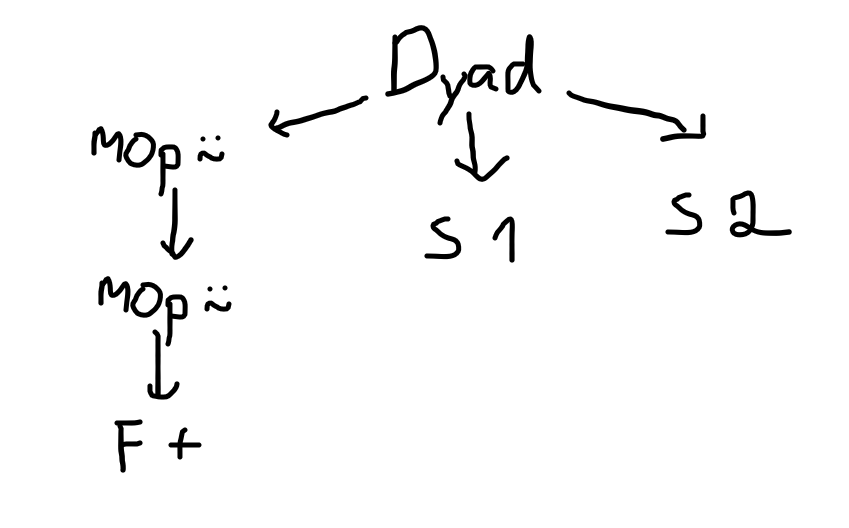 Dyad
MOp ~̈
S 1
S 2
MOp ~̈
F +